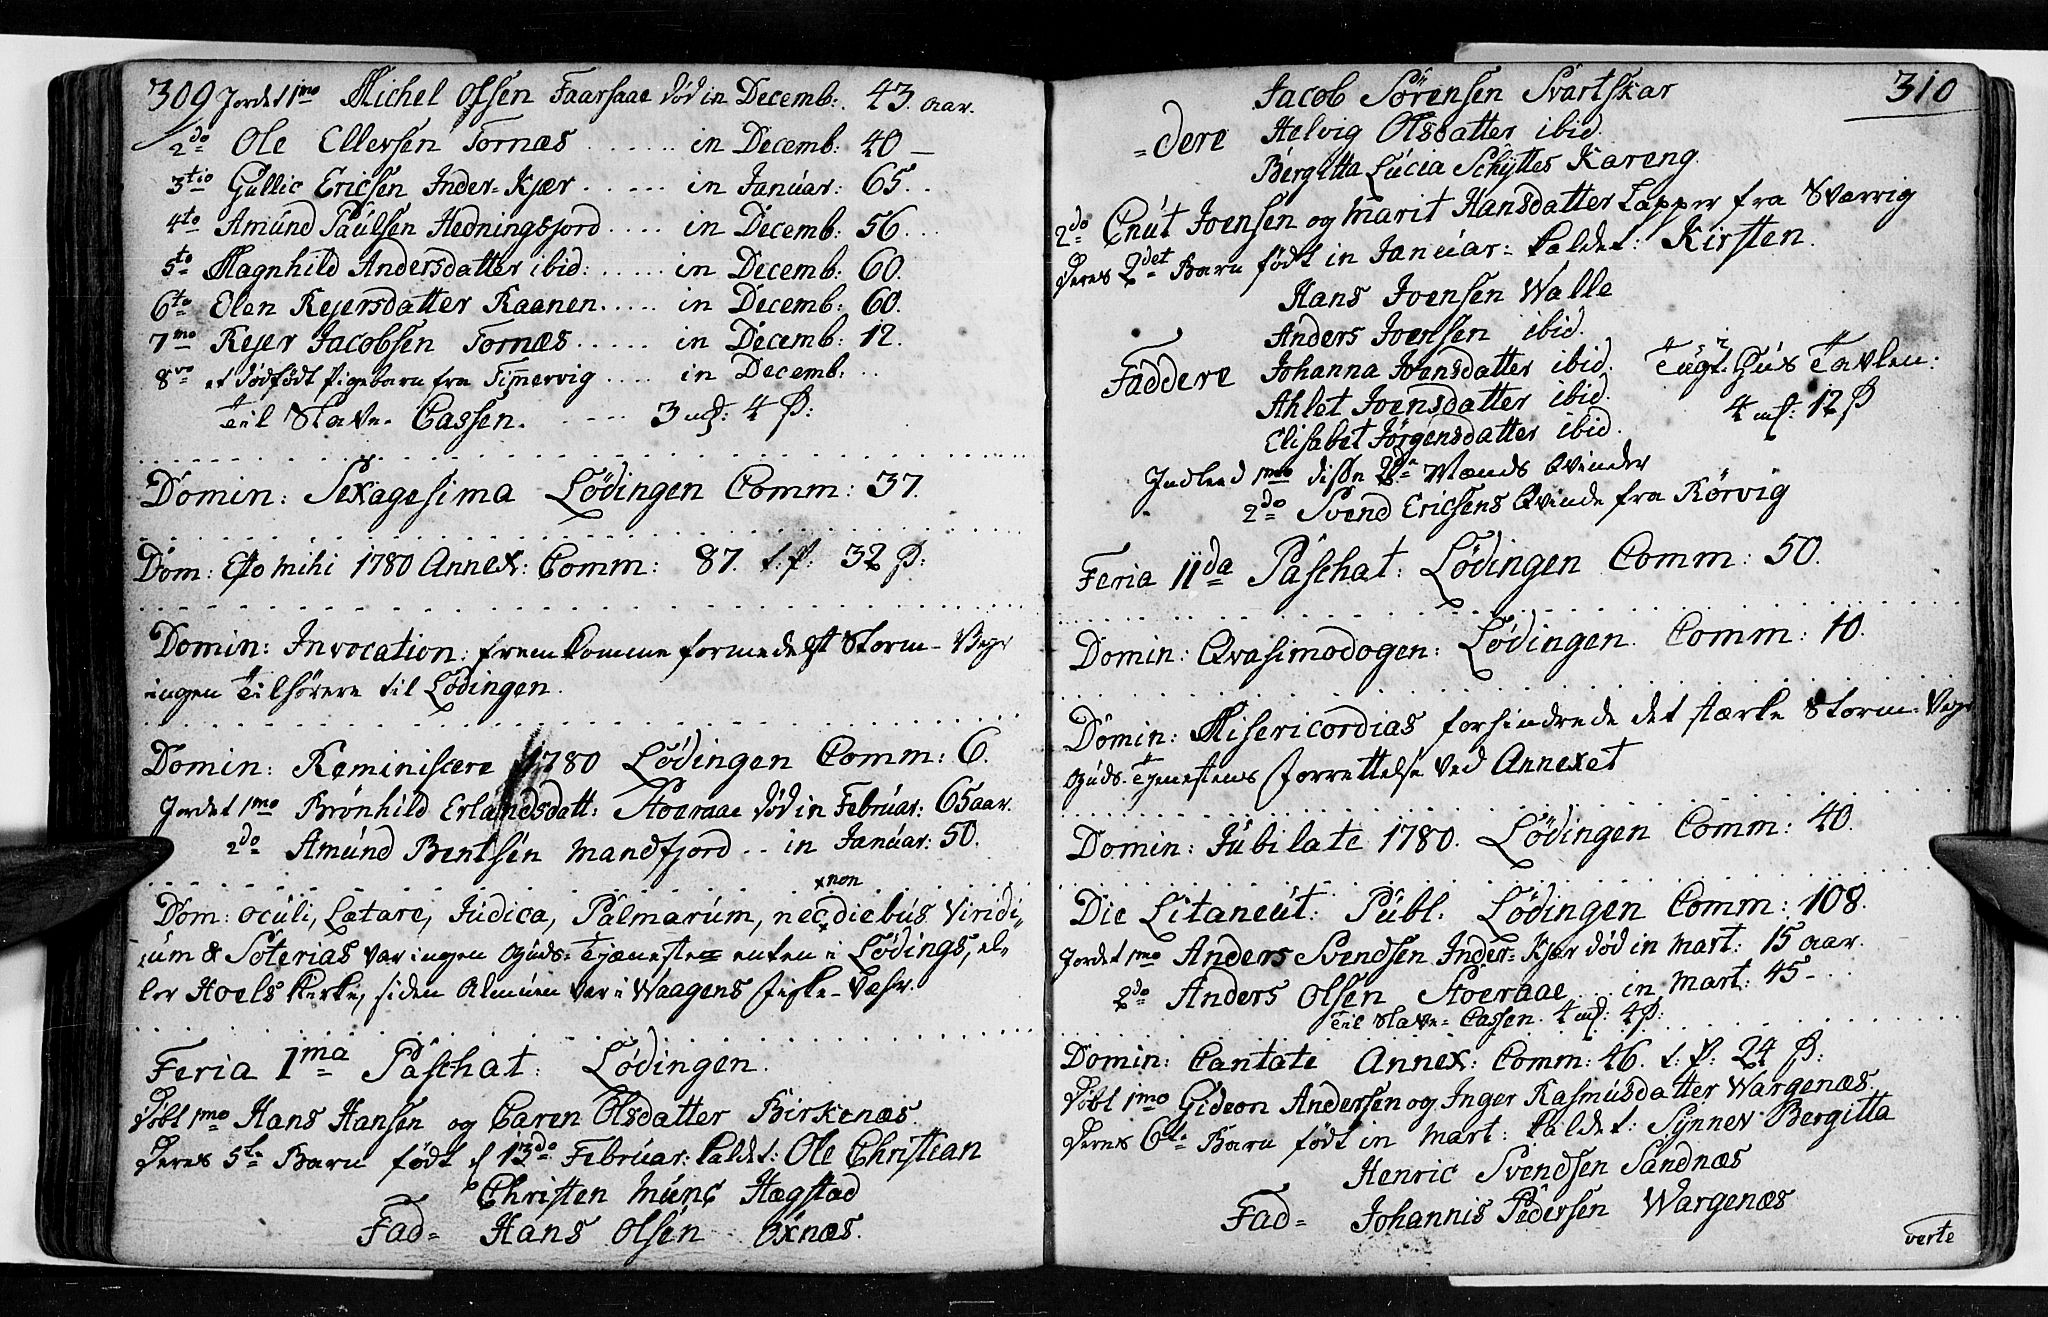 309 Jordet 1mo Michel Olsen Faarsaae død in Decemb: 43. aar.
2do Ole Ellersen Tornæs ...... in Decemb: 40 —
3tio Gullic Ericsen Inder-Kjær ...... in Januar: 65..
4to Amund Paulsen Hedningsfjord .... in Decemb: 56...
5to Magnhild Andersdatter ibid: ...... in Decemb: 60.
6to Elen Rejersdatter Raanen..... in Decemb: 60.
7mo Rejer Jacobsen Tornæs ..... in Decemb: 12.
8vo et dødfødt Pigebarn fra Timmervig .... in Decemb:
Til Slave-Cassen. .... 3 mk: 4 ß:
Domin: Sexagesima Lødingen Comm: 37.
Dom: Esto mihi 1780 Annex: Comm: 87. t. p: 32 ß:
Domin: Invocation: fremkomne formedelst Storm-Vejr
ingen Tilhørere til Lødingen.
Domin: Reminiscere 1780 Lødingen Comm: 6.
Jordet 1mo Brønhild Erlandsdatt: Stoeraae død in Februar: 65 aar.
2do Amund Bentsen Mandfjord .. in Januar: 50.
Dom: Oculi, Lætare, Judica, Palmarum, nec non diebus Viridi-
um & Soterias var ingen Guds-Tjæneste enten i Lødings, el-
ler Hoels Kirke, siden Almuen var i Waagens Fiske-Vær.
Feria 1ma Paschat: Lødingen.
Døbt 1mo Hans Hansen og Caren Olsdatter Birkenæs.
Deres 5te Barn født d 13de Februar: kaldet: Ole Christian
Christen Munc Hægstad
Fad= Hans Olsen Oxnæs.
310
Jacob Sörensen Svartskar
=dere Helvig Olsdatter ibid.
Bergitta Lucia Schyttes Kareng.
2do Cnut Joensen og Marit Hansdatter Lapper fra Sværrig
Deres 2det Barn født in Januar: kaldet: Kirsten.
Hans Joensen Walle
Anders Joensen ibid.
Faddere Johanna Joensdatter ibid. Tugt-Huus Tavlen:
Ahlet Joensdatter ibid. 4 mk: 12 ß
Elisabet Jørgensdatter ibid.
Indleed 1mo disse 2de Mænds Qvinder
2do Svend Ericsens Qvinde fra Rørvig
Feria IIda Paschat: Lødingen Comm: 50.
Domin: Qvasimodogen: Lødingen. Comm: 10.
Domin: Misericordias forhindrede det stærke Storm-Vejr
Guds-Tjenestens Forrettelse ved Annexet
Domin: Jubilate 1780. Lødingen Comm: 40.
Die Litaneut: Publ: Lødingen Comm: 108.
Jordet 1mo Anders Svendsen Inder-Kjær død in Mart: 15 aar.
2do Anders Olsen Stoeraae .. in Mart: 45 -
Til Slave-Cassen. 4 mk: 4 ß:
Domin: Cantate Annex: Comm: 46. t: p: 24 ß:
Døbt 1mo Gideon Andersen og Inger Rasmusdatter Wargenæs.
Deres 6te Barn født in Mart: kaldet: Synnev Bergitta
Henric Svendsen Sandnæs
Fad= Johannis Pedersen Wargenæs
verte